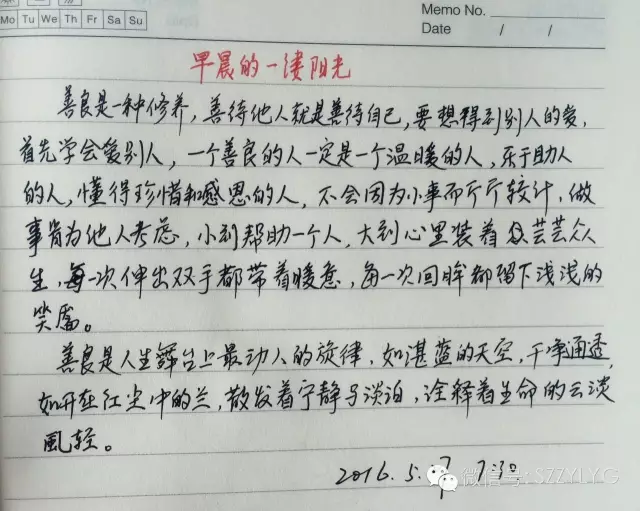 Memo No.
Mo Tu We Th Fr Sa Su
Date / /
早晨的一缕阳光
善良是一种修养，善待他人就是善待自己，要想得到别人的爱，
首先学会爱别人，一个善良的人一定是一个温暖的人，乐于助人
的人，懂得珍惜和感恩的人，不会因为小事而斤斤较计，做
事肯为他人考虑，小到帮助一个人，大到心里装着众芸芸众
生，每一次伸出双手都带着暖意，每一次回眸都留下浅浅的
笑靥。
善良是人生舞台上最动人的旋律，如湛蓝的天空，干净通透，
如开在红尘中的兰，散发着宁静与淡泊，诠释着生命的云淡
風轻。
2016.5.
微信号: SZZYLYG